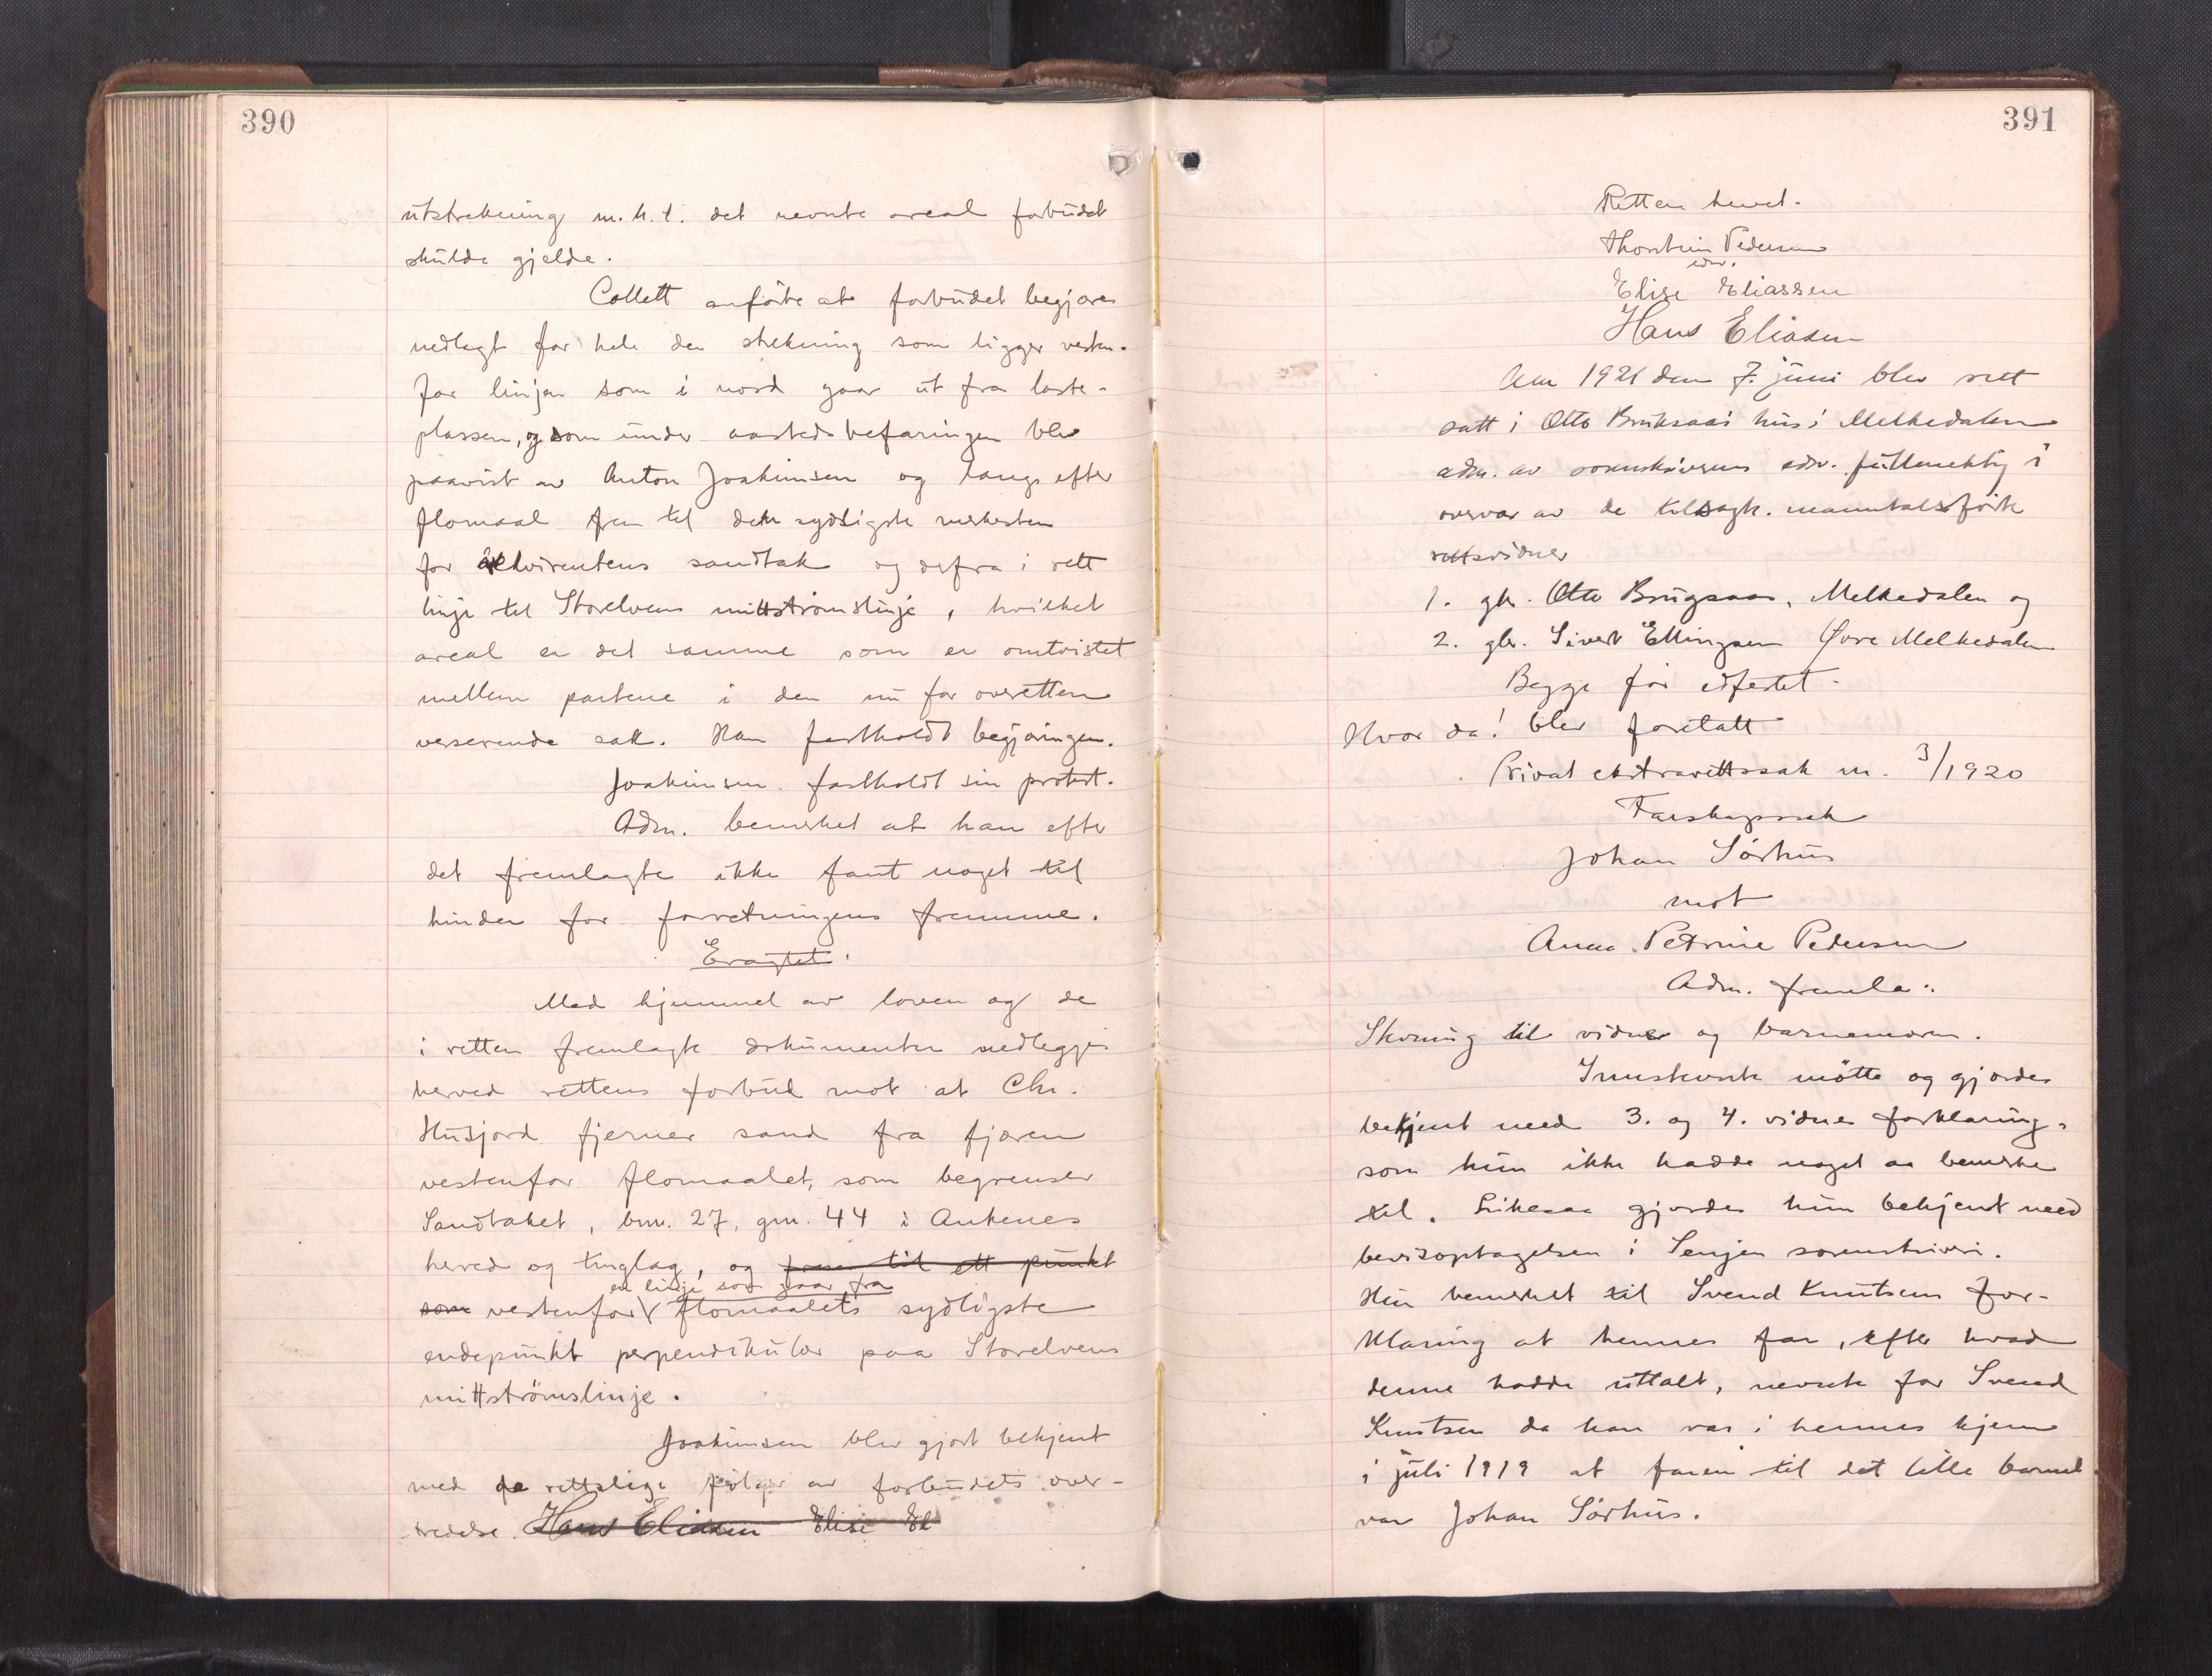 390
utstrekning m.h.t. det nevnte areal forbudet
skulde gjelde.
Collett anførte at forbudet begjæres
nedlagt for hele den strekning som ligger vesten-
for linjen som i nord gaar ut fra laste-
plassen, og som under aastedsbefaringen blev
paavist av Anton Joakimsen og langs efter
flomaal frem til den sydligste merkesten
for rekvirentens sandtak og derfra i rett
linje til Storelvens mittstrømslinje, hvilket
areal er det samme som er omtvistet
mellem partene i den nu for overetten
verserende sak. Han fastholdt begjæringen.
Joakimsen fastholdt sin protest.
Adm. bemerket at han efter
det fremlagte ikke fant noget til
hinder for forretningens fremme.
Eragtet:
Med hjemmel av loven og de
i retten fremlagte dokumenter nedlegges
herved rettens forbud mot at Chr.
Husjord fjerner sand fra fjæren
vestenfor flomaalet, som begrenser
Sandtaket, bnr. 27, gnr. 44 i Ankenes
herred og tinglag, og frem til ett punkt
en linje som gaar fra
som vestenfor flomaalets sydligste
endepunkt perpendikulær paa Storelvens
mittstrømslinje.
Joakimsen blev gjort bekjent
med de rettslige følger av forbudets over-
tredelse. Hans Eliasen Elise El
391
Retten hevet.
Thorstein Pedersen
edsv.
Elise Eliassen
Hans Eliasen
Aar 1921 den 7. juni blev rett
satt i Otto Bruksaas hus i Melkedalen
adm. av sorenskriverens edsv. fullmektig i
overvær av de tilsagte. manntalsførte
rettsvidner
1. gbr. Otto Brugsaas, Melkedalen og
2. gbr. Sivert Ellingsen Øvre Melkedalen
Begge før edfestet.
Hvor da! blev foretatt
Privat ekstrarettssak nr. 3/1920
Farskapssak
Johan Sørhus
mot
Anna Petrine Pedersen
Adm. fremla:
Stevning til vidner og barnemoren.
Innstevnte møtte og gjordes
bekjent med 3. og 4. vidnes forklaring,
som hun ikke hadde noget aa bemerke
til. Likesaa gjordes hun bekjent med
bevisoptagelsen i Senjen sorenskriveri.
Hun bemerket til Svend Knutsens for-
klaring at hennes far, efter hvad
denne hadde uttalt, nevnte for Svend
Knutsen da han var i hennes hjem
i juli 1919 at faren til det lille barnet
var Johan Sørhus.